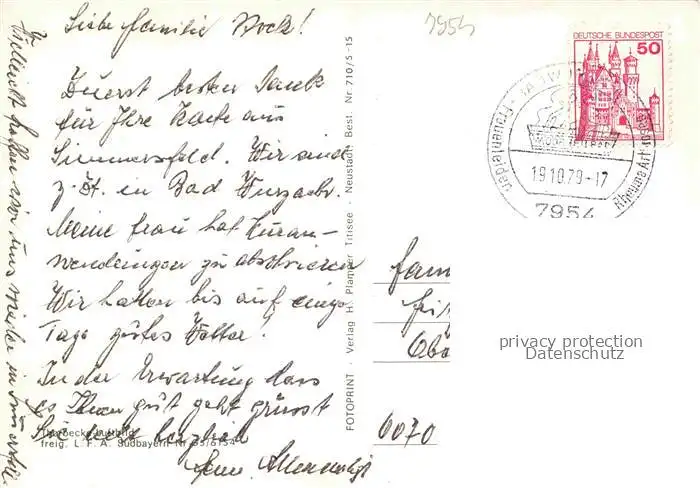 Liebe Familie
Zuerst besten Dank
für Ihre Karte aus
Simmersfeld. Wir sind
z. Zt. in Bad Wurzach.
Meine Frau hat Kuran-
wendungen zu absolvieren
Wir hatten bis auf einige
Tage gutes Wetter!
In der Erwartung dass
es Ihnen gut geht grüsst
Sie recht herzlich
Vielleicht treffen wir uns wieder in
7954
FOTOPRINT - Verlag H. Plamper Titisee - Neustadt; Best. Nr. 710/5-15
freig. L. F. A. Südbayern Nr.
DEUTSCHE BUNDESPOST
50
Frauenleiden
Rheuma
19.10.79-17
7954
Fam
Obe
privacy protection
Datenschutz